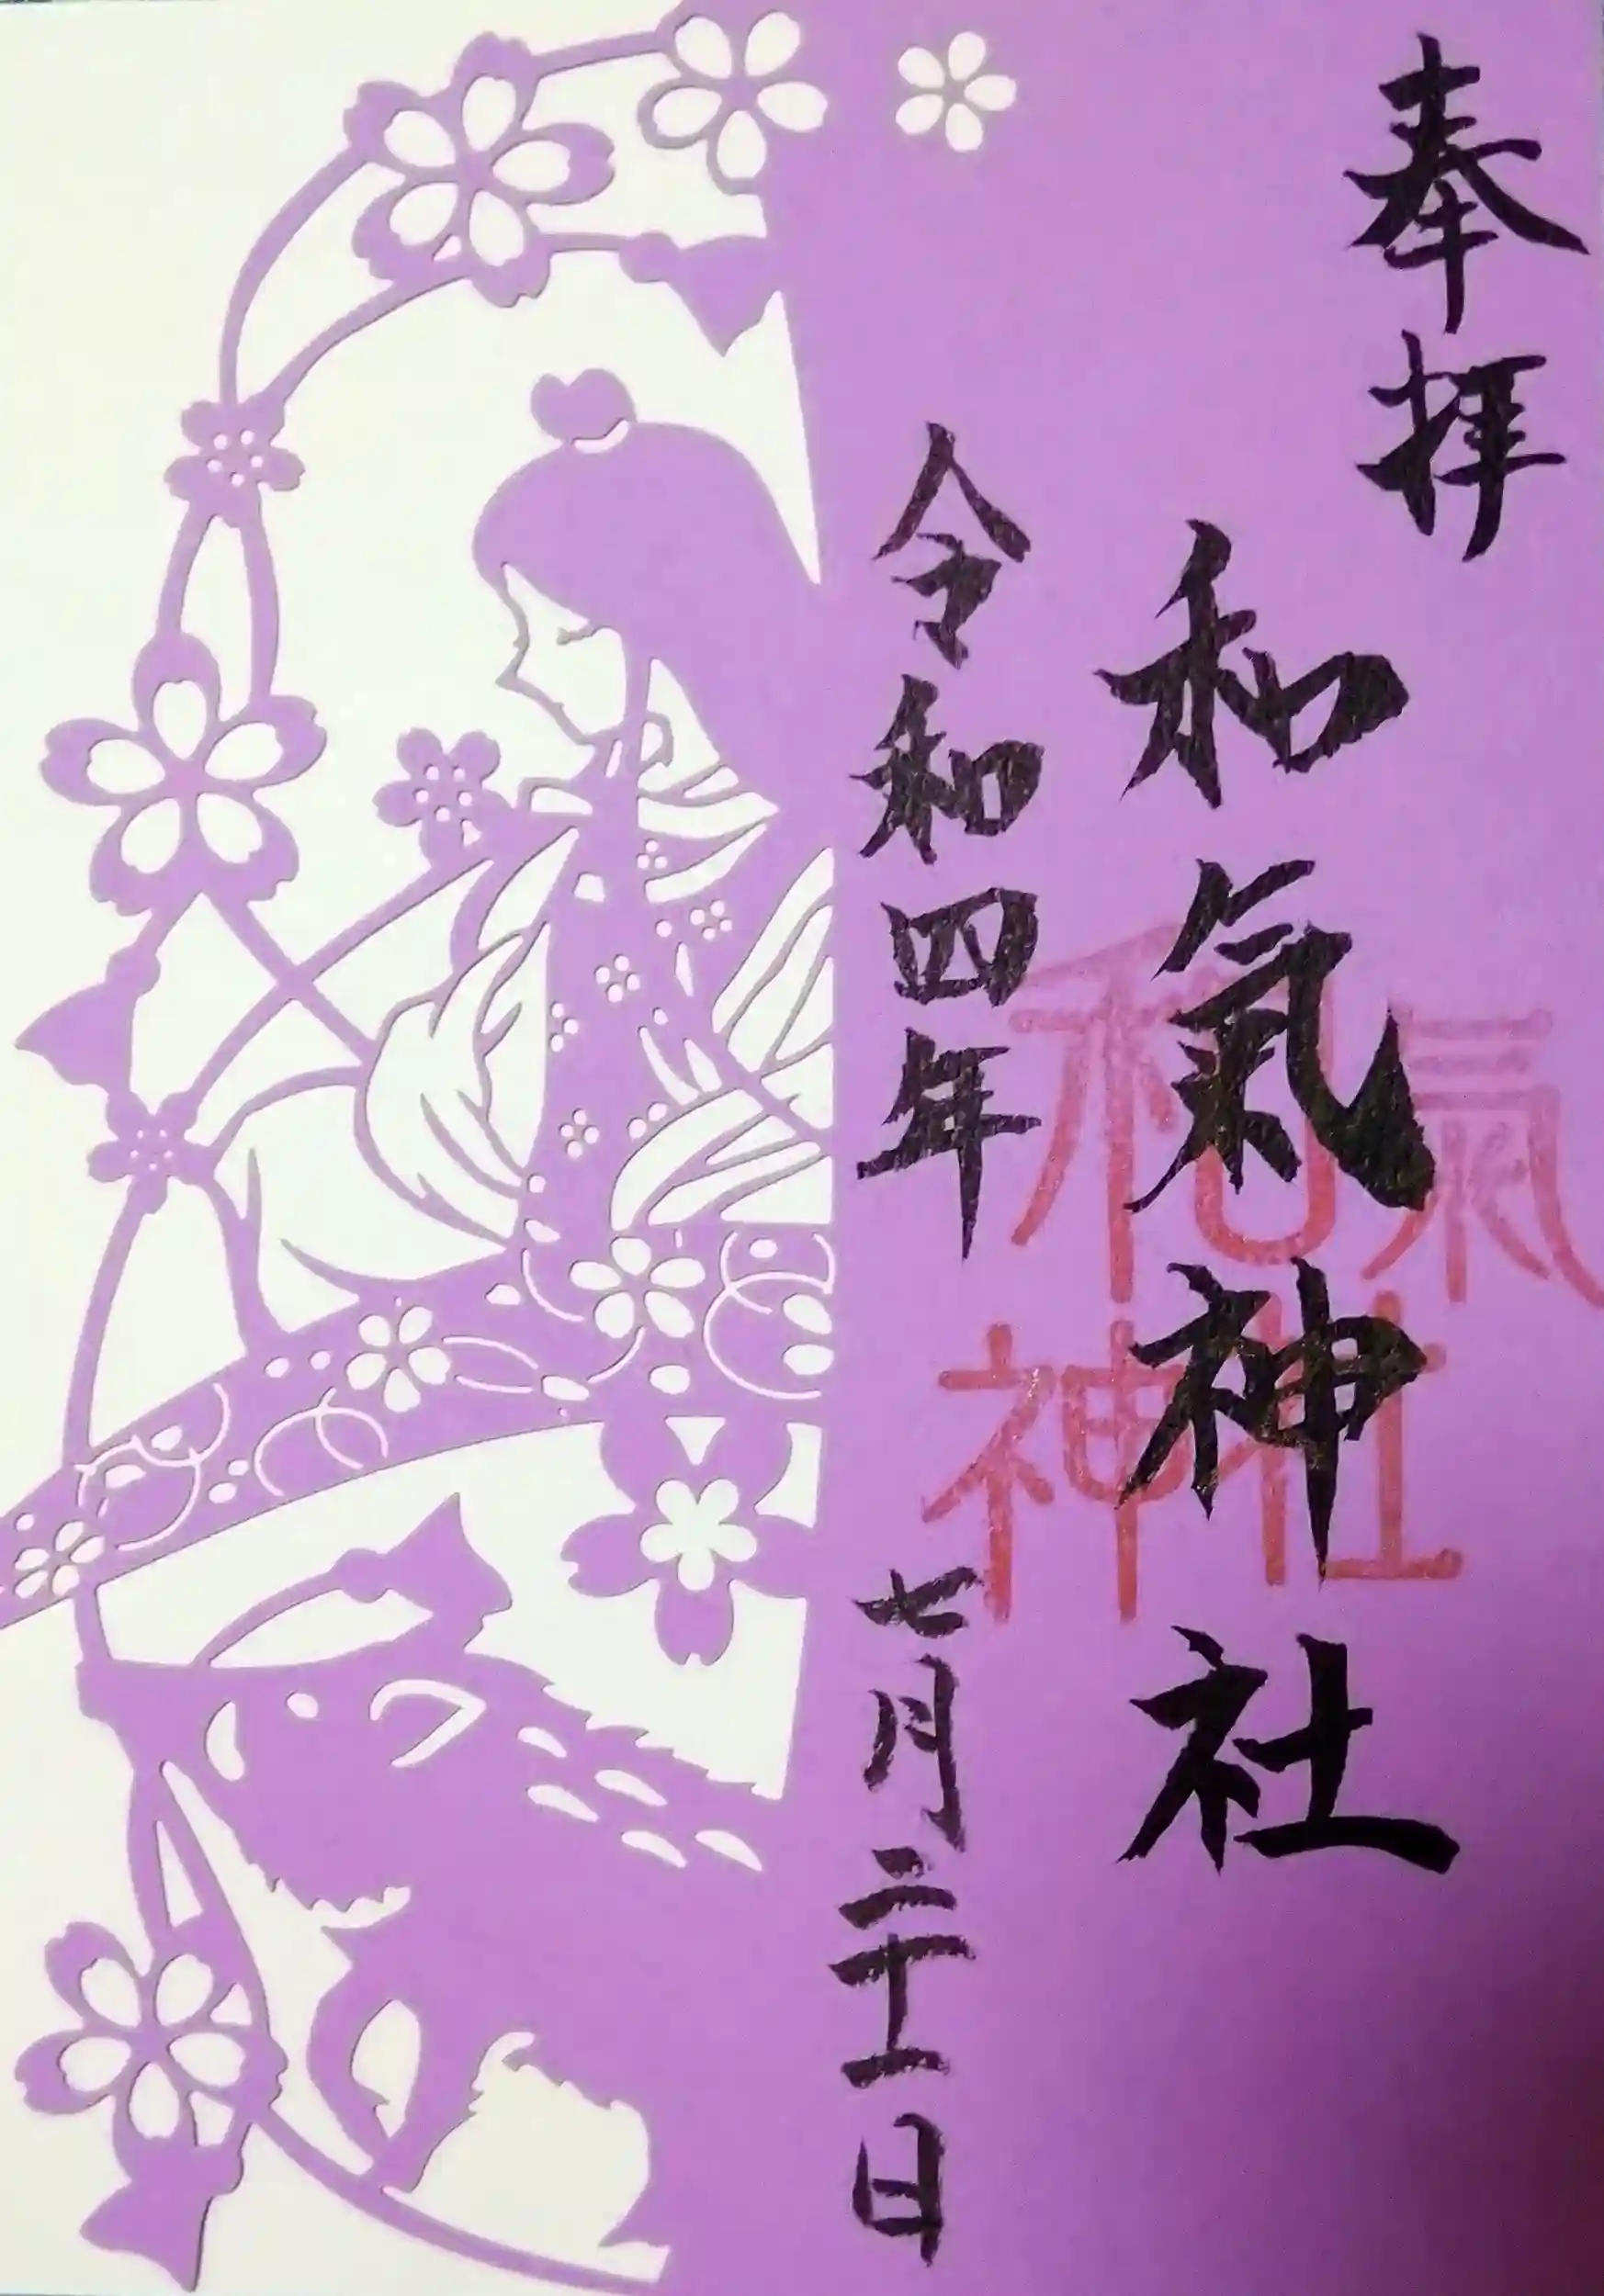 奉拝
和氣神社
令和四年 七月二十一日
和氣
神社